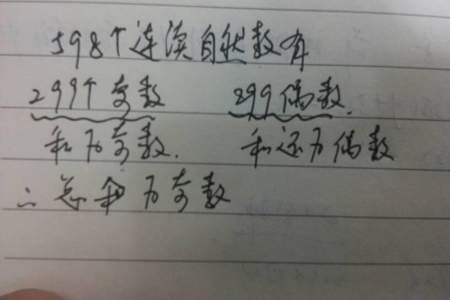 598个连续自然数有
299个奇数 299偶数.
和为奇数. 和还为偶数
∴总和为奇数